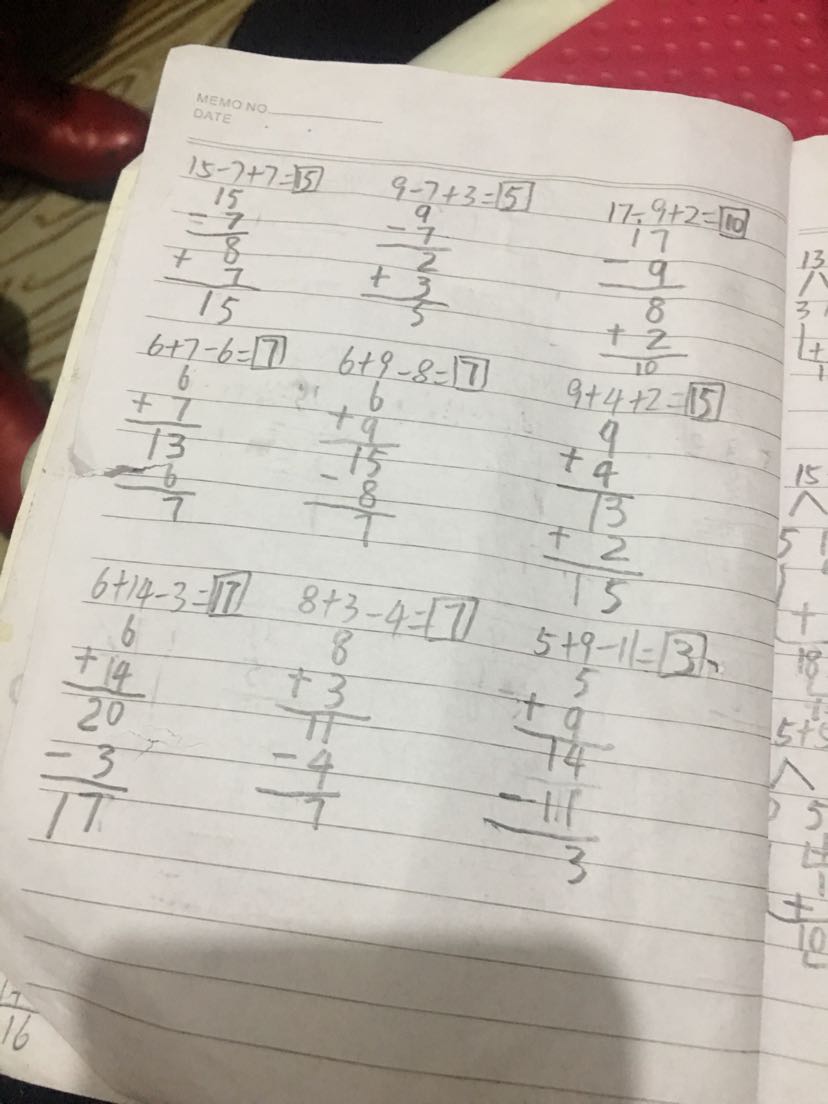 MEMO NO.
DATE
15-7+7=15
15
- 7
8
+ 7
15
9-7+3=5
9
- 7
2
+ 3
5
17-9+2=10
17
- 9
8
+ 2
10
6+7-6=7
6
+ 7
13
- 6
7
6+9-8=7
6
+ 9
15
- 8
7
9+4+2=15
9
+ 4
13
+ 2
15
6+14-3=17
6
+ 14
20
- 3
17
8+3-4=7
8
+ 3
11
- 4
7
5+9-11=3
5
+ 9
14
- 11
3
13
3
15
5
+
18
5+5
5
1
+
10
16